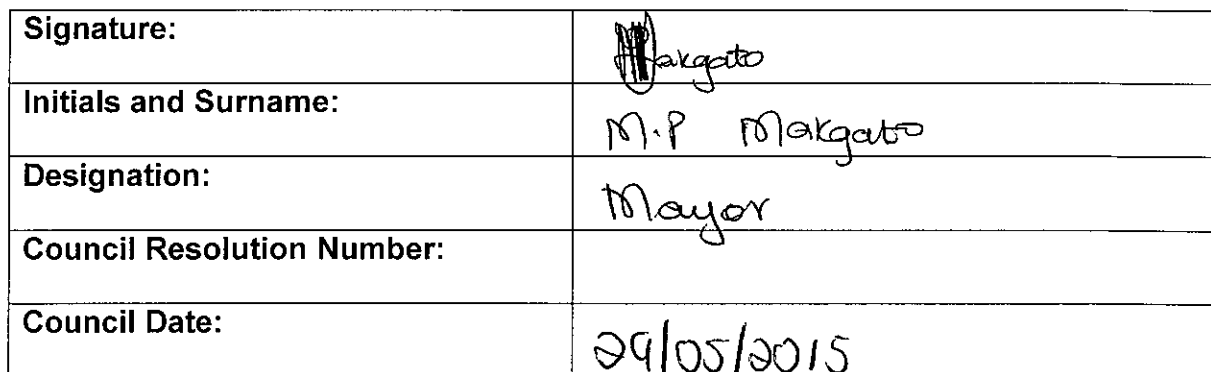 Signature: Makgato
Initials and Surname: M.P Makgato
Designation: Mayor
Council Resolution Number:
Council Date: 29/05/2015